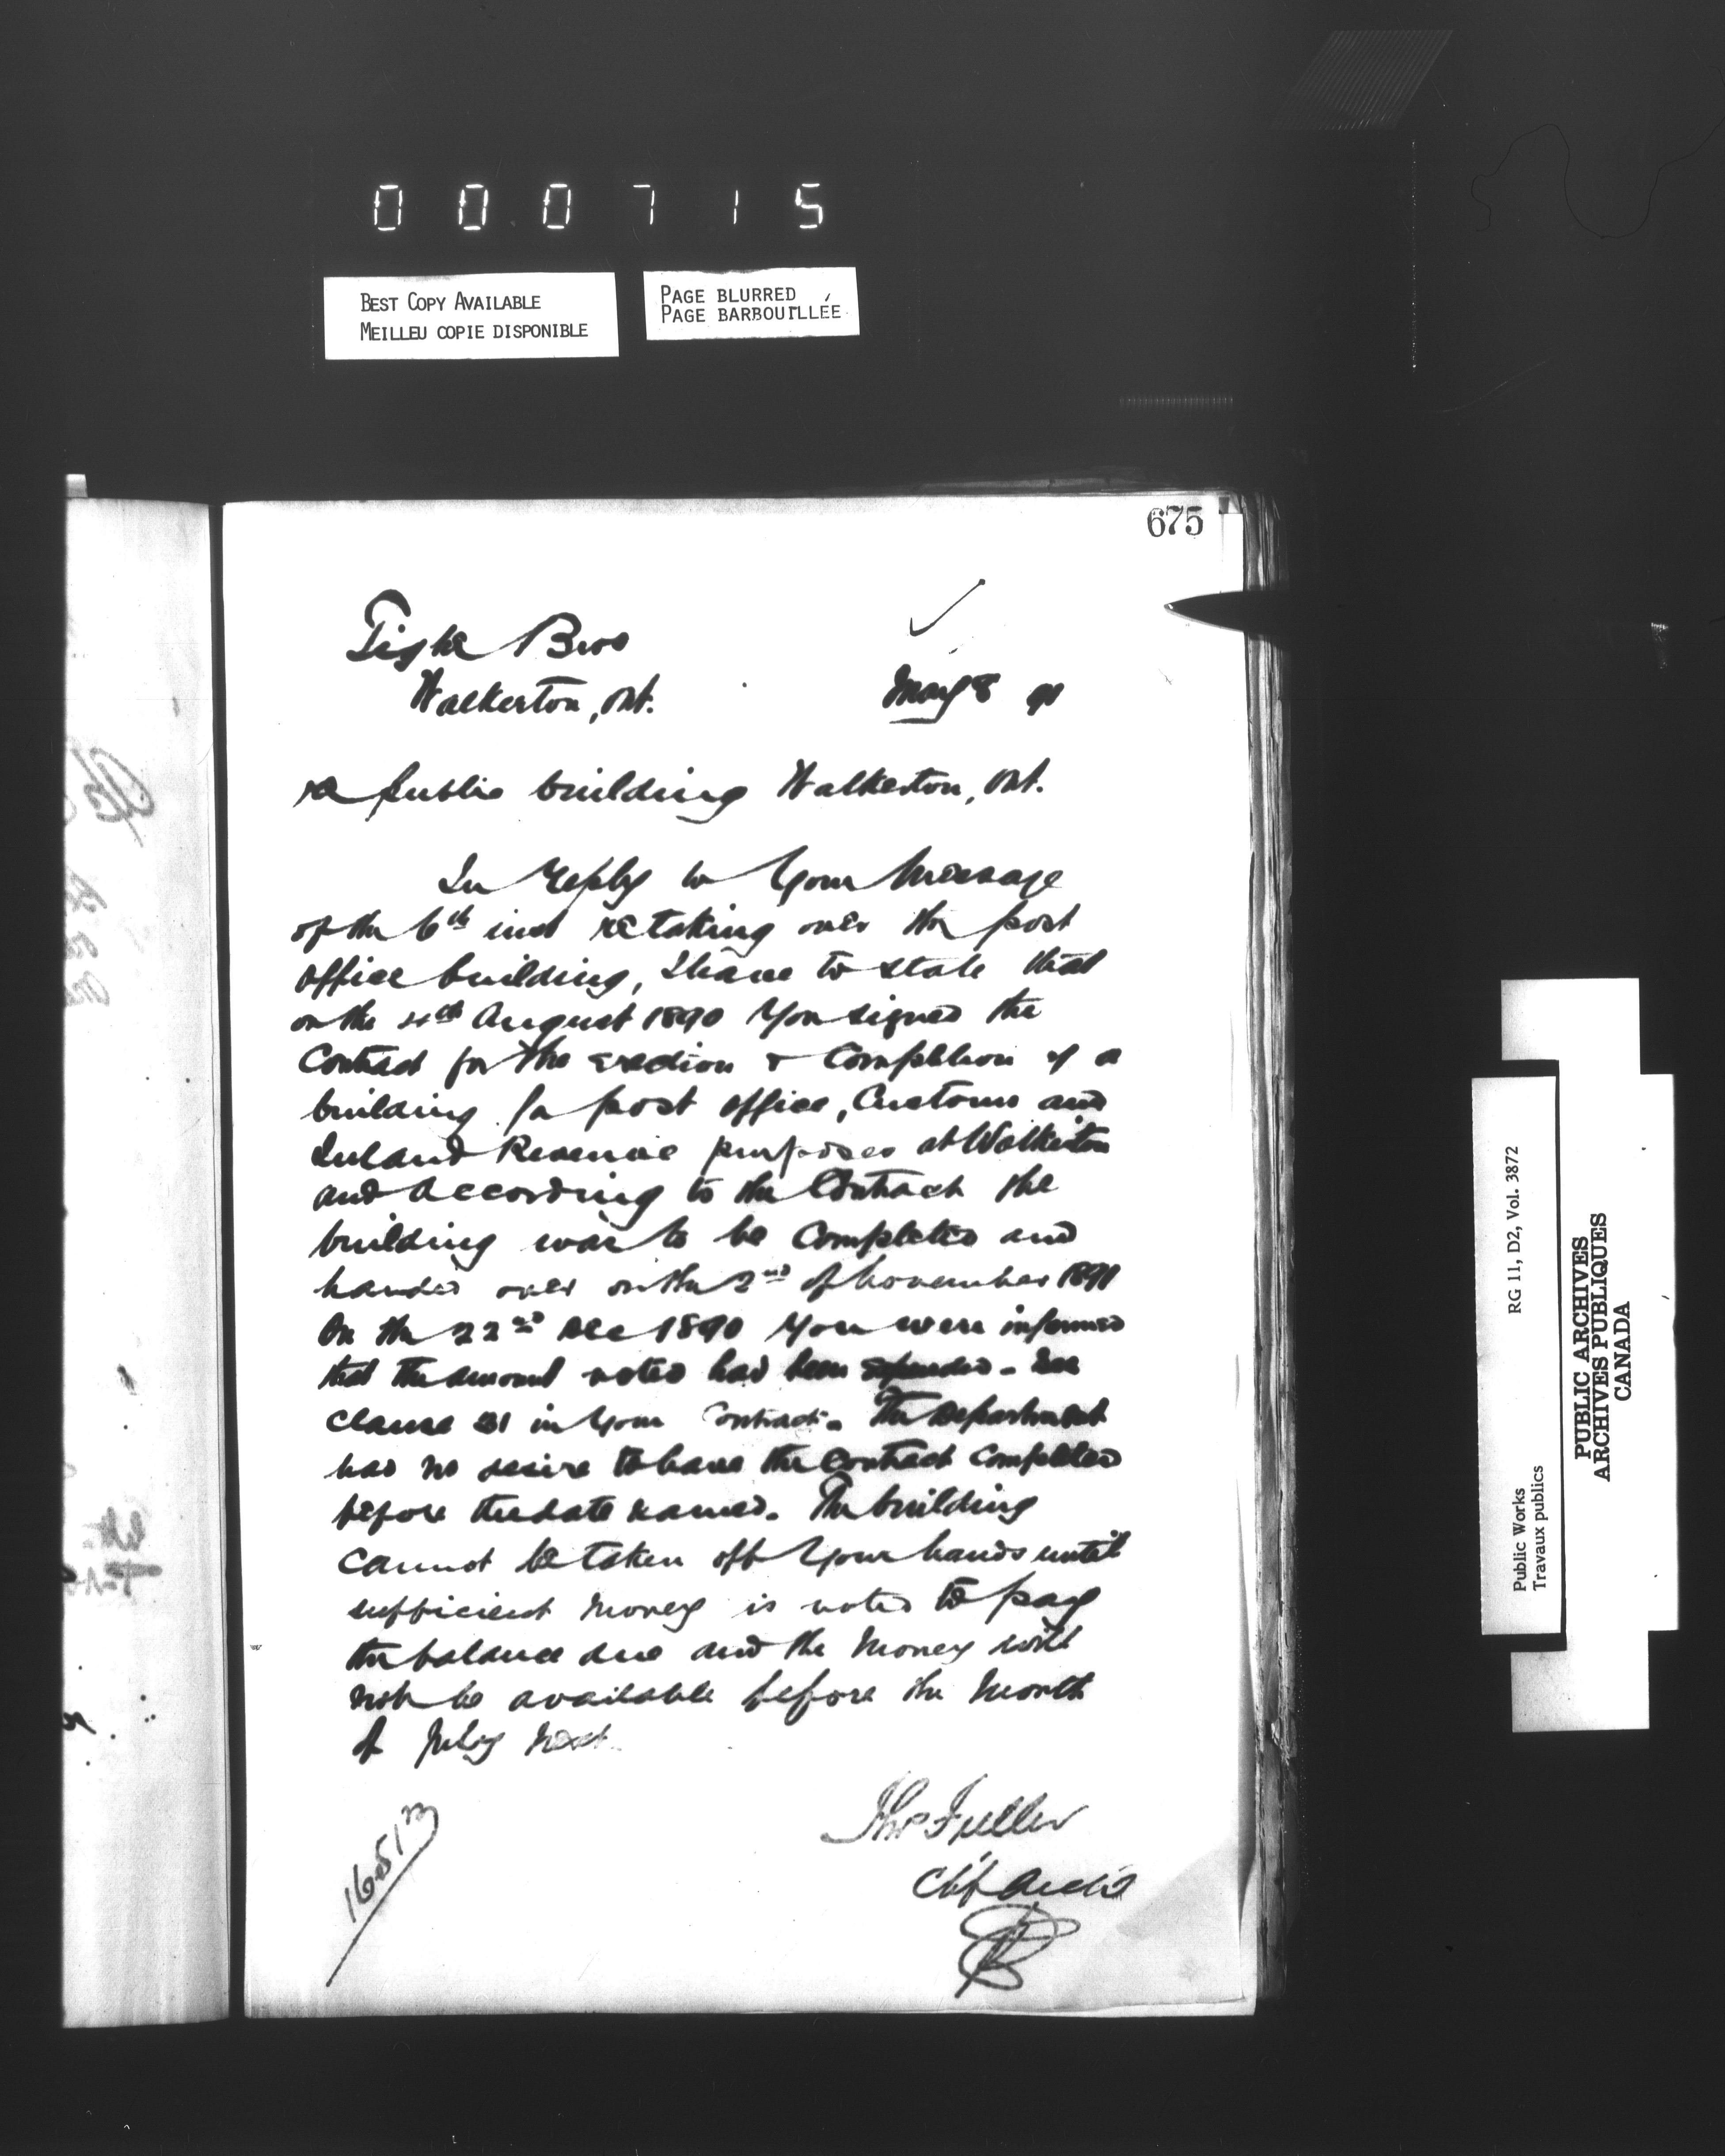 000715
BEST COPY AVAILABLE
MEILLEU COPIE DISPONIBLE
PAGE BLURRED
PAGE BARBOUILLÉE
675
Bros
Walkerton, Ont.
May 8 91
re public building Walkerton, Ont.
In reply to your message
of the 6th inst re taking over the post
office building, I have to state that
on the 4th August 1890 you signed the
Contract for the erection & Completion of a
building for post office, Customs and
Inland Revenue purposes at Walkerton
and according to the Contract the
building was to be Completed and
handed over on the 2nd of November 1891
On the 22nd Dec 1890 you were informed
that the amount voted had been expended - See
Clause 31 in your Contract. The Department
has no desire to have the Contract Completed
before the date named. The building
cannot be taken off your hands until
sufficient money is voted to pay
the balance due and the money will
not be available before the month
of July next
Thos Fuller
Chf Archt
16513
RG 11, D2, Vol. 3872
Public Works
Travaux publics
PUBLIC ARCHIVES
ARCHIVES PUBLIQUES
CANADA